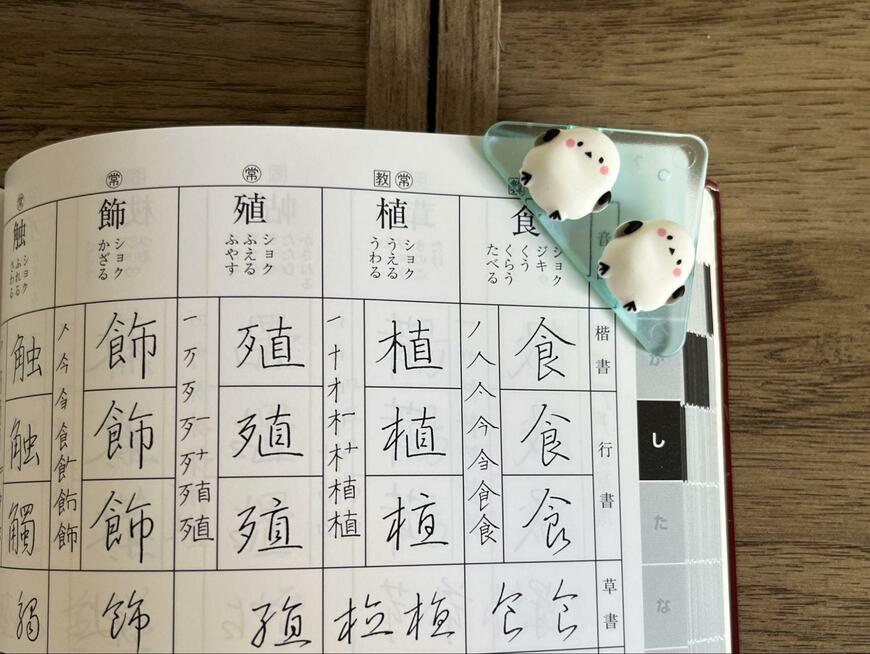 音
楷書
行書
草書
食
ショク
ジキ
くう
くらう
たべる
食
食
食
食 食
教 常
植
ショク
うえる
うわる
一 十 植
植
植
植
植 植
常
殖
ショク
ふえる
ふやす
一 歹 殖
殖
殖
殖
殖
常
飾
ショク
かざる
人 今 食 飾
飾
飾
飾
飾
常
触
ショク
ふれる
さわる
触
触
觸
觸
か
し
た
な